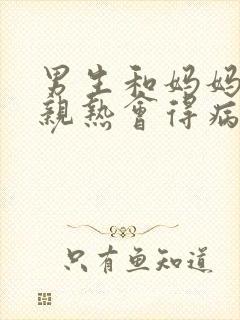 男生和妈妈
親热會得病
只有鱼知道